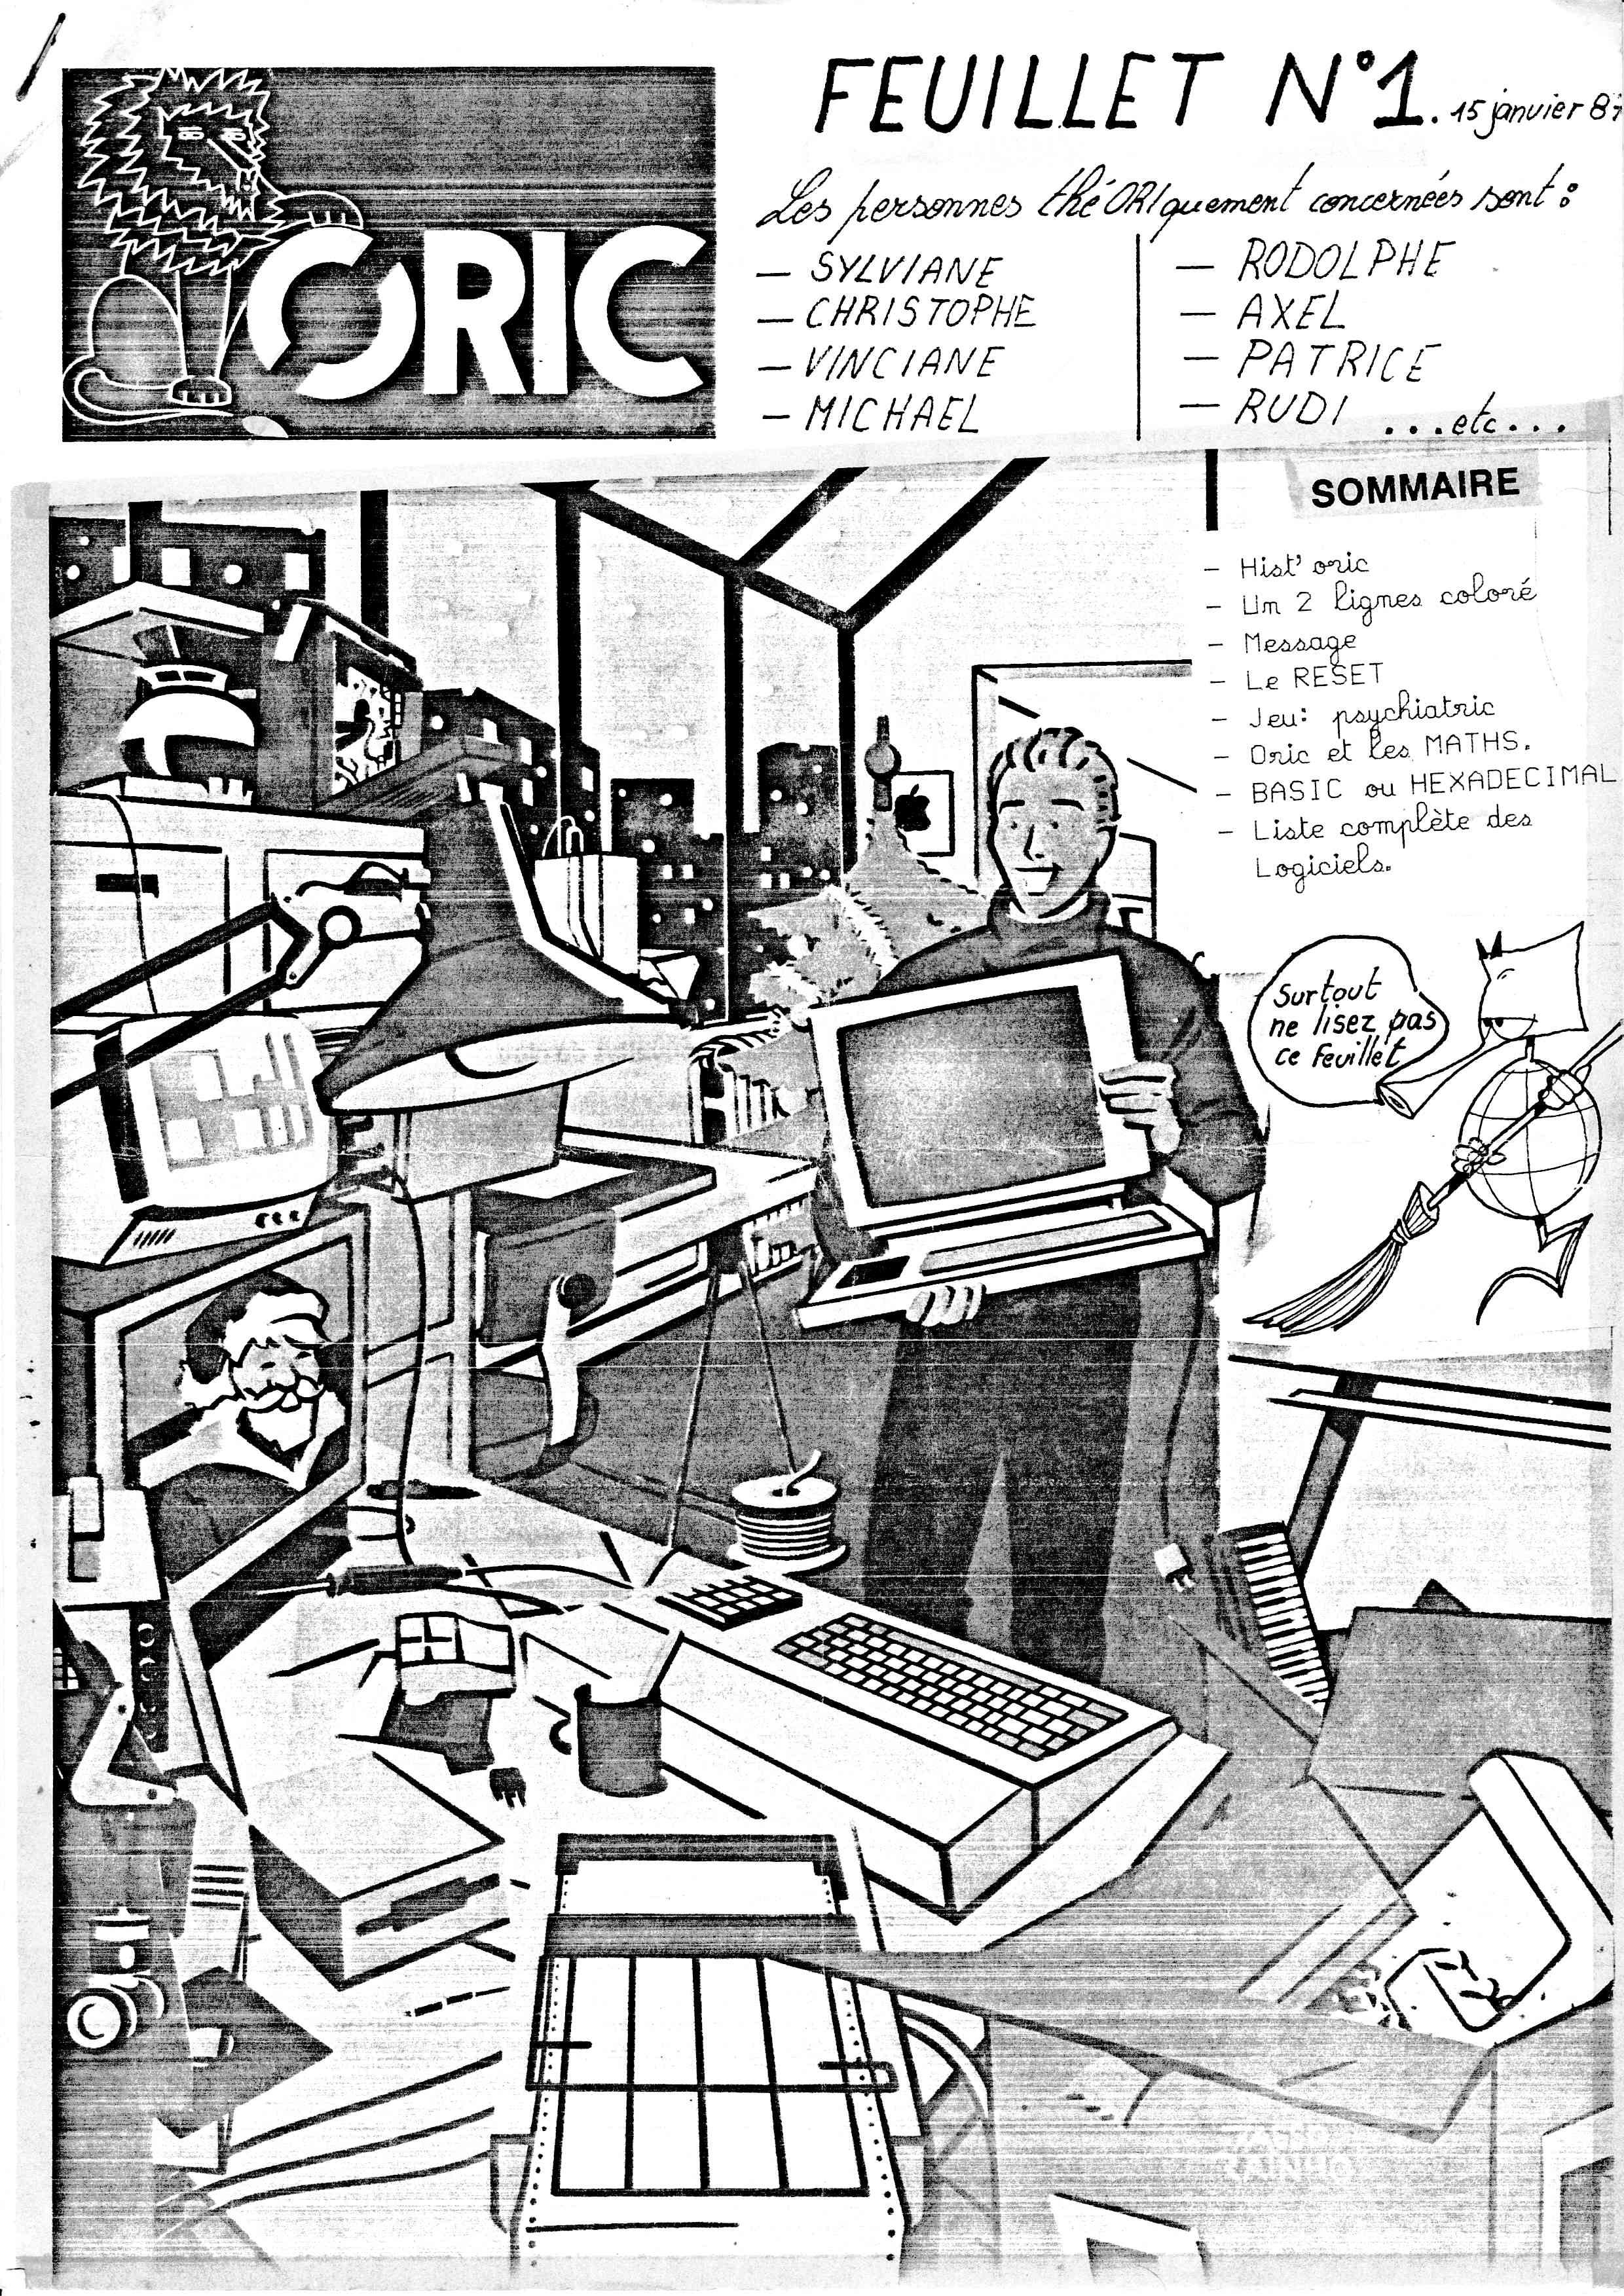 FEUILLET N°1. 15 janvier 87
ORIC
Les personnes théORIquement concernées sont :
- SYLVIANE
- CHRISTOPHE
- VINCIANE
- MICHAEL
- RODOLPHE
- AXEL
- PATRICE
- RUDI ...etc...
SOMMAIRE
- Hist' oric
- Un 2 lignes coloré
- Message
- Le RESET
- Jeu: psychiatric
- Oric et les MATHS.
- BASIC ou HEXADECIMAL
- Liste complète des
Logiciels.
Surtout
ne lisez pas
ce feuillet